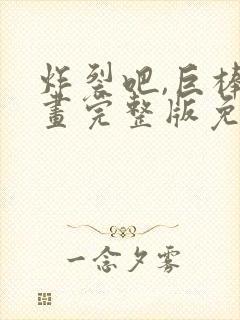 炸裂吧,巨棒
畫完整版免
一念夕雾